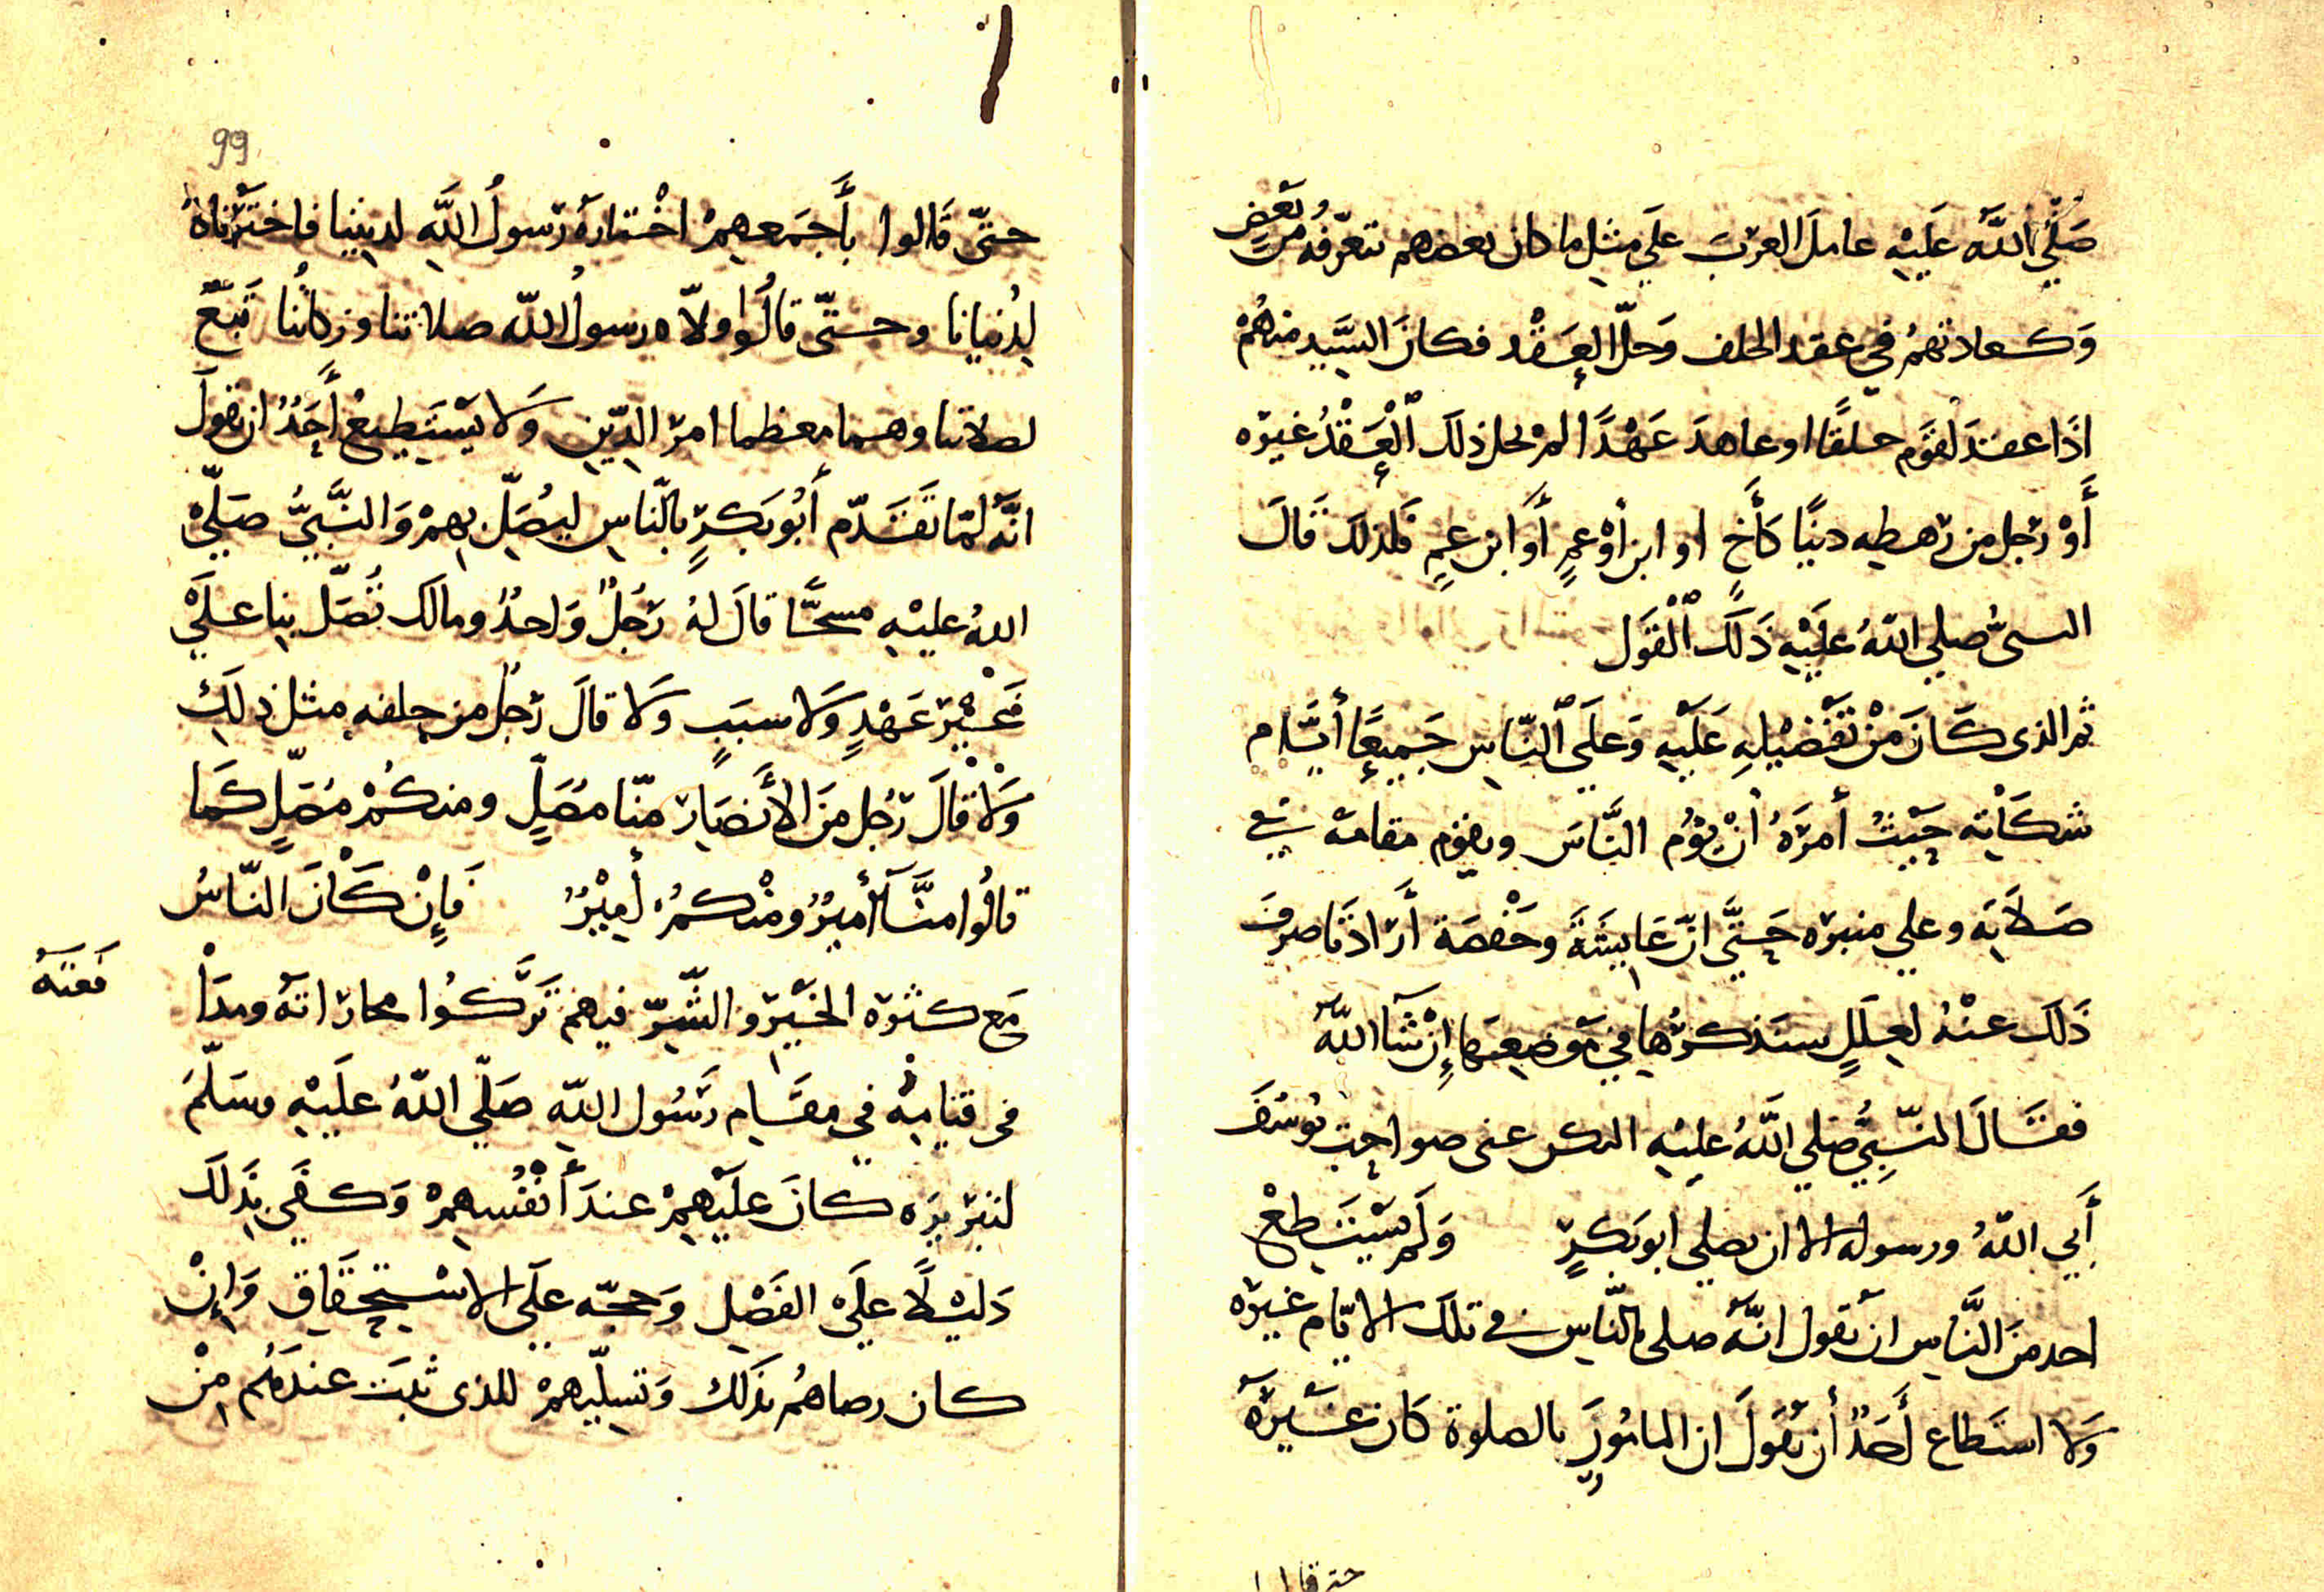 صَلَّي اللَّه عَلَيْهِ عامل العرب علي مثل ما كان بعضهم تتعرّفه من بَعْضٍ
وَكعادتهمُ في عقد الحلف وَحلّ العَقْد فكان السَّيد منهُمْ
اذَا عقد لقَوم حلفًا او عاهدَ عَهْدًا لمْ يحل ذلك الْعَقْدُ غيره
أَوْ رَجل من رهطه دنيًا كَأَخ او ابن أوْ عمٍ أَو ابن عمٍ فلذلك قَالَ
النبىُّ صلي اللهُ عَلَيْهِ ذَلكَ الْقَوَل
ثم الذى كَانَ مَنْ تَفْضيْلهِ عَلَيْهِ وَعلَي النّاس جَميعًا أيَّام
شكَاْته حَيْثُ أمرَهُ أنْ يؤُم النَّاسَ ويقوم مقامه في
صَلَاته وعلي منبره حَتَّي انّ عَايشَةَ وحَفْصَة أَرَادَتَا صرف
ذَلكَ عنْهُ لعِلَلٍ سنَذكرُها في مَوضعهَا إنْ شَآ اللهُ
فقَالَ النّبِيُّ صَلي اللَّهُ عليْهِ اليكن عنى صواحبَ يُوسُفَ
أَبي اللهُ ورسوله الا ان يصلي ابوبَكرٍ وَلَم يَسْتَطعْ
احد منَ النَّاسِ ان يقول انَّه صلى بالنّاسِ في تلكَ الايّام غيرَه
وَلا استَطاع أَحَدٌ أن يَقولَ ان المامُورَ بالصلوة كَان غَيرَهُ
حتى قالوا
99
حتّى قَالوا بأَجمَعهِمْ اخْتارَهُ رَسولُ اللَّهِ لديننا فاختَرْنَاهُ
لِدُنيانا وحتّى قالُوا ولّاه رسولُ اللّه صلاتنا وزكاتُنا تَبَعٌ
لصلاتنا وهما معظما امر الدّينِ وَلا يَسْتَطيعُ أَحَدٌ ان يقولَ
انَّه لمّا تَقَدّم أَبُو بَكرٍ بالنّاسِ ليُصَلّ بهمْ وَالنَّبيُّ صَلّيْ
اللهُ عليْهِ مسجًّا قالَ لهُ رَجُلٌ وَاحدٌ ومالكَ تُصَلّ بنا عَلَيْ
غَيْر عَهْدٍ وَلا سببٍ وَلا قالَ رَجلٌ من خلفه مثل ذلَكَ
وَلَا قَالَ رَجُل منَ الأَنصَارِ منّا مصَلٍّ ومنكُمْ مُصَلٍّ كَما
قالُوا منَّا أَميرٌ ومْنكمُ أَميْرٌ فَإنْ كَانَ النّاسُ
مَع كثرة الخَيْر والشَّرّ فيهم تَرَّكُوا مجاراتَه ومدَاْ
فَعتهُ
فى قيامِهْ في مقَام رَسُول اللّهِ صَلّي اللهُ عَلَيْهِ وسَلّمَ
لتبْريزه كانَ علَيْهمْ عندَ أَنْفُسهمْ وَكفَي بذَلكَ
دَليْلًا علَيْ الفَضْلِ وَحجّه علَي الاسْتحقَاقِ وَإنْ
كان رضاهُم بذَلك وَتسليمهمْ للذى ثبتَ عندَهُم منْ